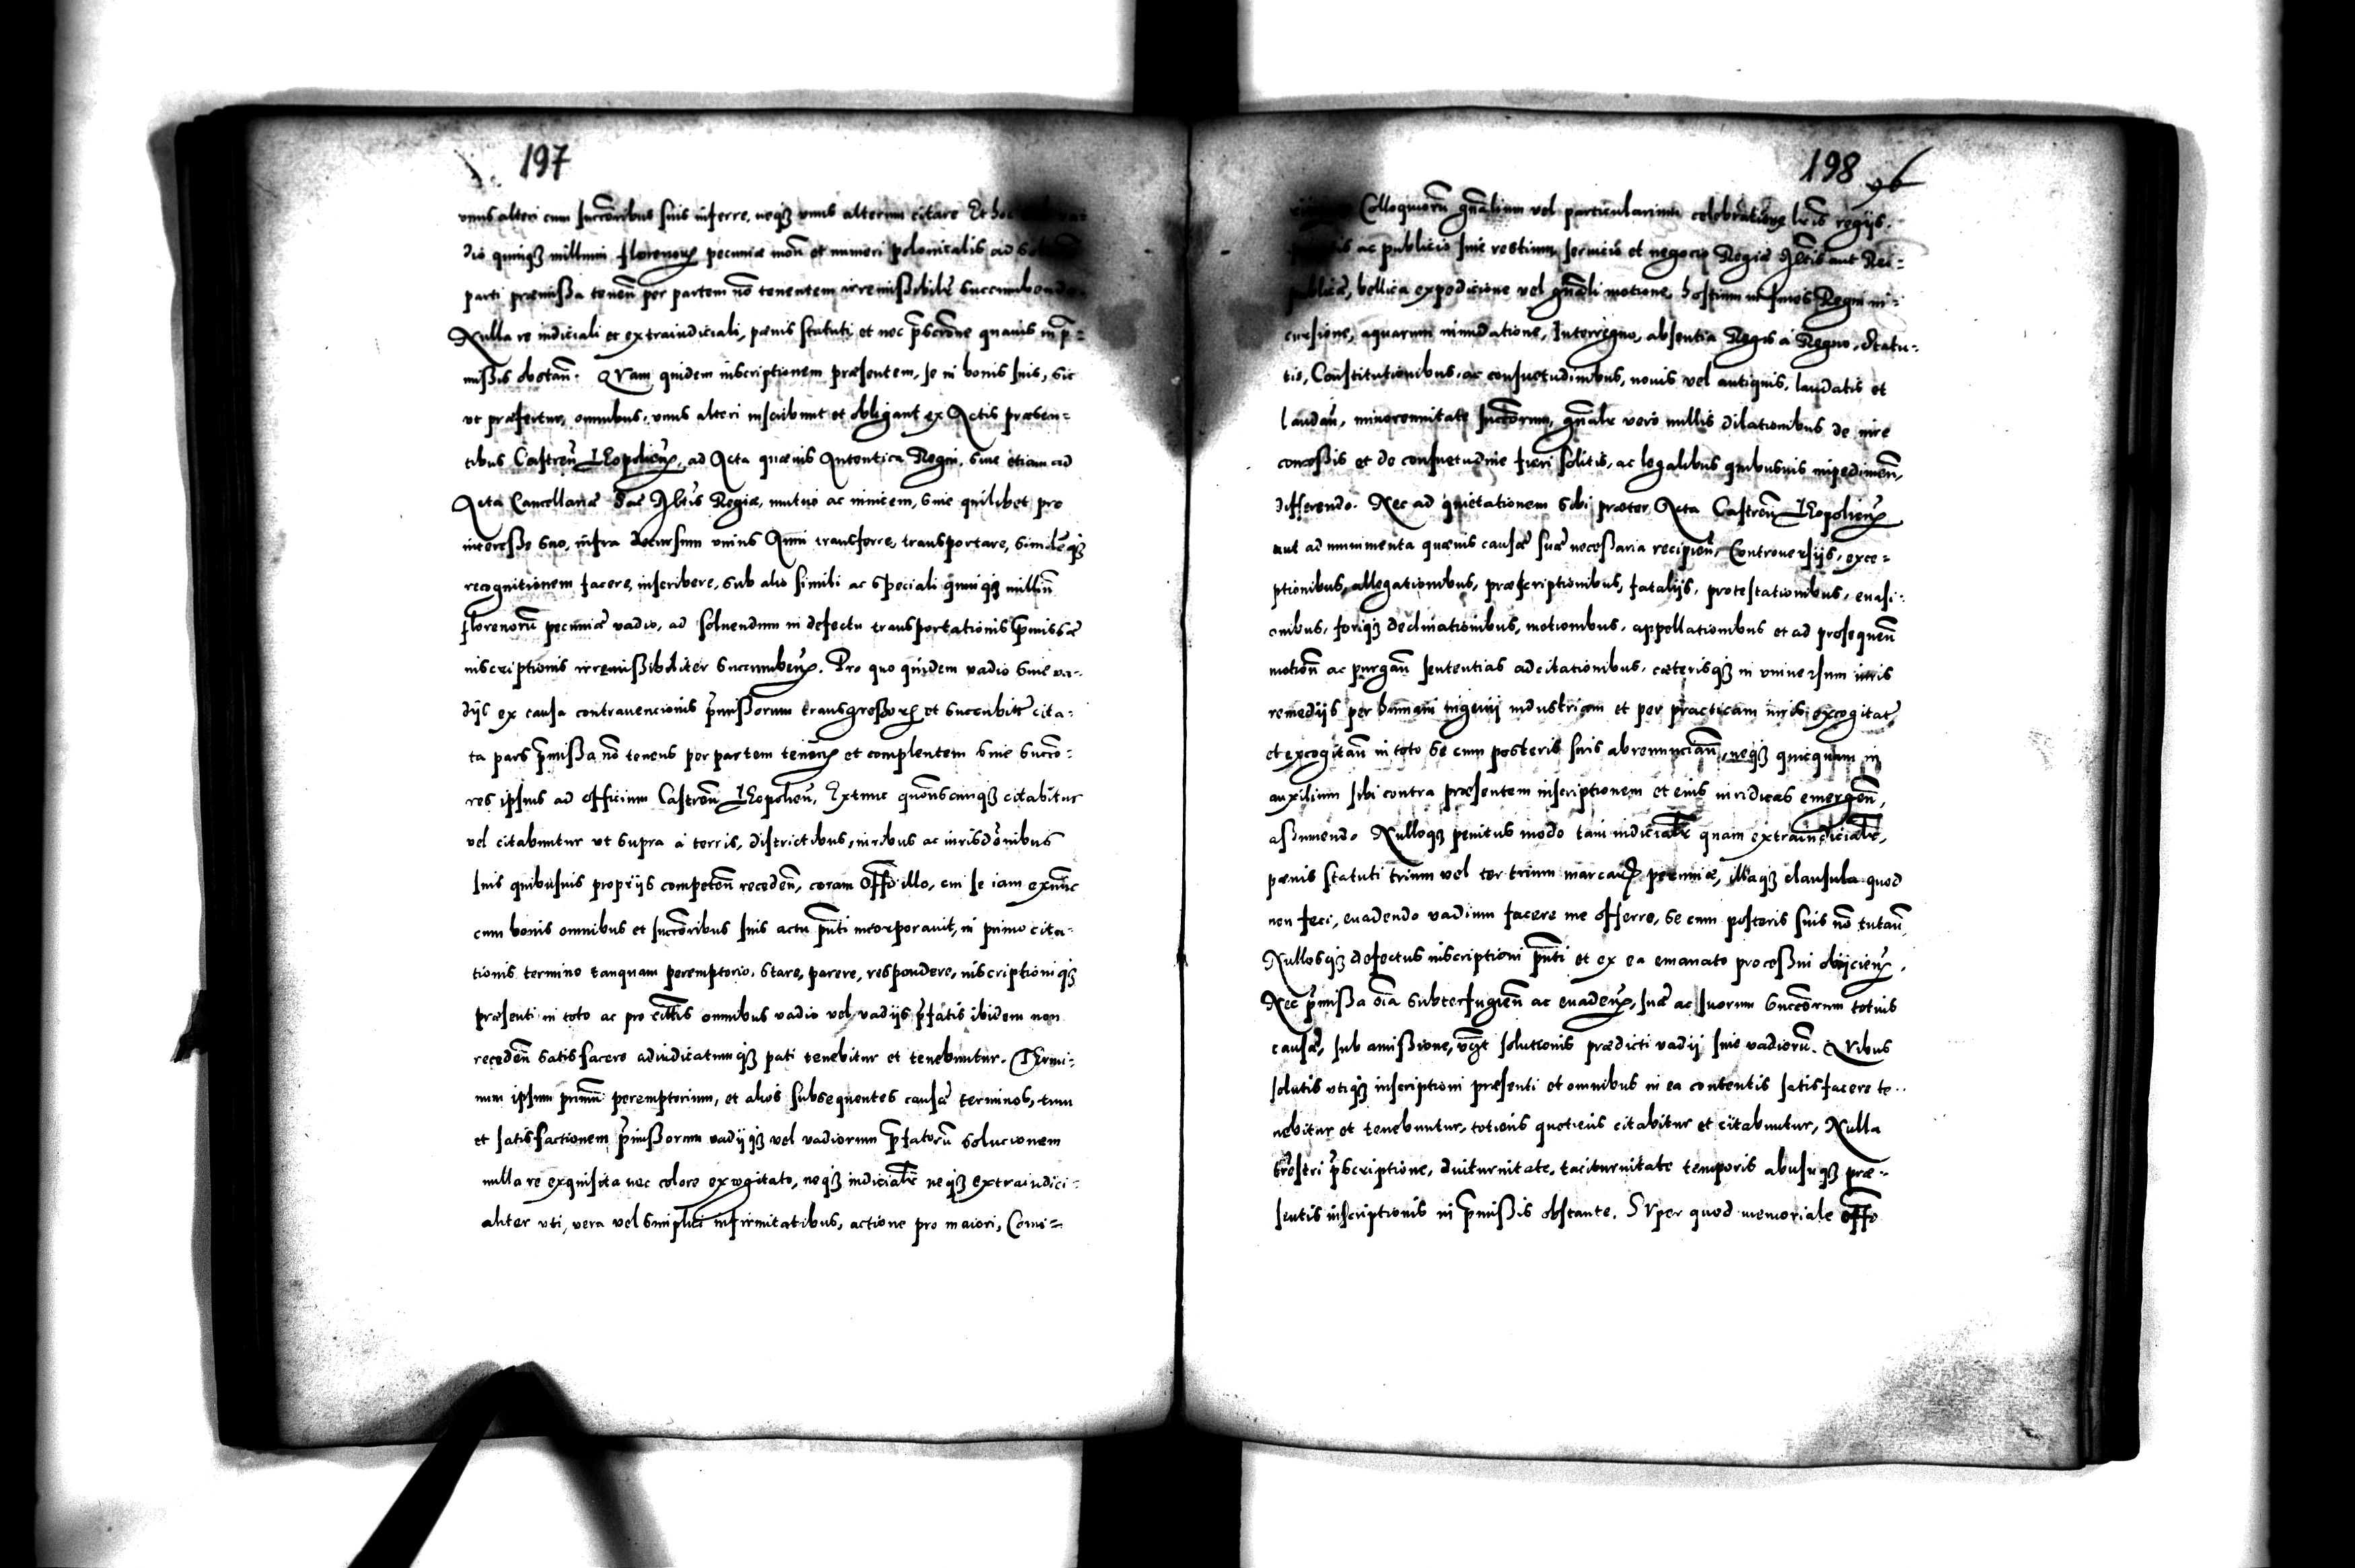 197
vnus alteri cum succõribus suis inferre, neqȝ vnus alterum citare Et hoc
dio quinqȝ millium florenorꝝ pecuniæ mon̄ et numeri polonicalis ad
parti præmissa tenen̄ per partem nõ tenentem irremissibilr̃ succumbendo.
Nulla re iudiciali et extraiudiciali, pænis statuti et nec p̃scr̃one quauis in p̃-
missis obstan̄. QVam quidem inscriptionem præsentem, se in bonis suis, sic
vt præfertur, omnibus, vnus alteri inscribunt et obligant ex Actis præsen=
tibus Castren̄ LEopolien̄, ad Acta quæuis Autentica Regni, siue etiam ad
Acta Cancellariæ Sac̃ Mt̃is Regiæ, mutuo ac inuicem, siue quilibet pro
interesse suo, infra decursum vnius Anni transferre, transportare, similẽqȝ
recognitionem facere, inscribere, sub alio simili ac speciali quinqȝ milliũ
florenorũ pecuniæ vadio, ad soluendum in defectu transportationis p̃missæ
inscriptionis irremissibiliter succumben̄. Pro quo quidem vadio siue va-
dijs ex causa contrauencionis p̃missorum transgressorꝝ et succubitꝰ cita-
ta pars p̃missa nõ tenens per partem tenen̄ et complentem siue succõ-
res ipsius ad officium Castren̄ LEopolien̄, Extunc quõnscunqȝ citabitur
vel citabuntur vt supra à terris, districtibus, iuribus ac iurisdõnibus
suis quibusuis proprijs competen̄ receden̄, coram Offõ illo, cui se iam exnũc
cum bonis omnibus et succõribus suis actu p̃nti incorporauit, in primo cita-
tionis termino tanquam peremptorio, stare, parere, respondere, inscriptioniqȝ
præsenti in toto ac pro omnibus vadio vel vadijs p̃fatis ibidem non
receden̄ satisfacere adiudicatumqȝ pati tenebitur et tenebuntur. TErmi-
num ipsum primũ peremptorium, et alios subsequentes causæ terminos, tum
et satisfactionem p̃missorum vadijqȝ vel vadiorum p̃fatorũ solucionem
nulla re exquisita nec colore excogitato, neqȝ iudicialr̃ neqȝ extraiudici-
aliter vti, vera vel simplici infirmitatibus, actione pro maiori, Comi=
198
96
Colloquiorũ gñalium vel particularium celebratione, lr̃is regijs
ac publicis siue vestium, seruicio et negocijs Regiæ Mt̃is aut Rei-
publicæ, bellica expedicione vel gñali motione, hostium in fines Regni in-
cursione, aquarum inundatione, Interregno, absentia Regis à Regno, statu-
tis, Constitutionibus, ac consuetudinibus, nouis vel antiquis, laudatis et
laudan̄, minorennitate succõrum, gñalr̃ vero nullis dilationibus de iure
concessis et de consuetudine fieri solitis, ac legalibus quibusuis impedimen̄,
differendo. Nec ad quietationem sibi præter Acta Castren̄ LEopolien̄
aut ad munimenta quæuis causæ suæ necessaria recipien̄, Controuersijs, exce-
ptionibus, allegationibus, præscriptionibus, fatalijs, protestationibus, euasi-
onibus, foriqȝ declinationibus, motionibus, appellationibus et ad prosequen̄
motion̄ ac purgan̄ sententias adcitationibus, cæterisqȝ in vniuersum iuris
remedijs per humani ingenij industriam et per practicam iuris excogitat̃
et excogitan̄ in toto se cum posteris suis abrenuncian̄, neqȝ quicquam in
auxilium sibi contra præsentem inscriptionem et eius iuridicas emergen̄,
assumendo Nulloqȝ penitus modo tam iudicialr̃ quam extraiudicialr̃,
pænis statuti trium vel ter trium marcarꝝ pecuniæ, illaqȝ clausula quod
non feci, euadendo vadium facere me offerro, se cum posteris suis nõ tutan̄,
Nullosqȝ defectus inscriptioni p̃nti et ex ea emanato processui obijcien̄,
Nec p̃missa oĩa subterfugien̄ ac euaden̄, suæ ac suorum succõrum totius
causæ, sub amissione, solutionis prædicti vadij siue vadiorũ. QVibus
solutis vtiqȝ inscriptioni præsenti et omnibus in ea contentis satisfacere te-
nebitur et tenebuntur, totiens quotiens citabitur et citabuntur, Nulla
trẽstri p̃scriptione, diuturnitate, taciturnitate temporis abusuqȝ præ-
sentis inscriptionis in p̃missis obstante. SVper quod memoriale offõ